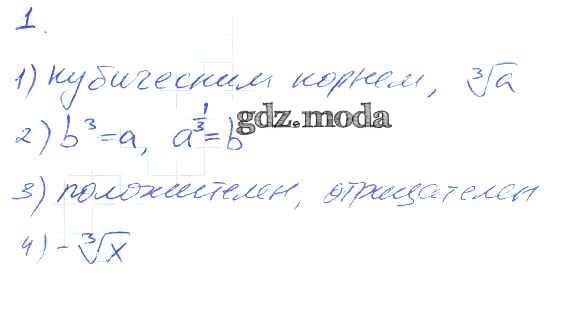 1.
1) кубическим корнем, ∛a
2) b³=a, a^{1/3}=b
gdz.moda
3) положителен, отрицателен
4) -∛x